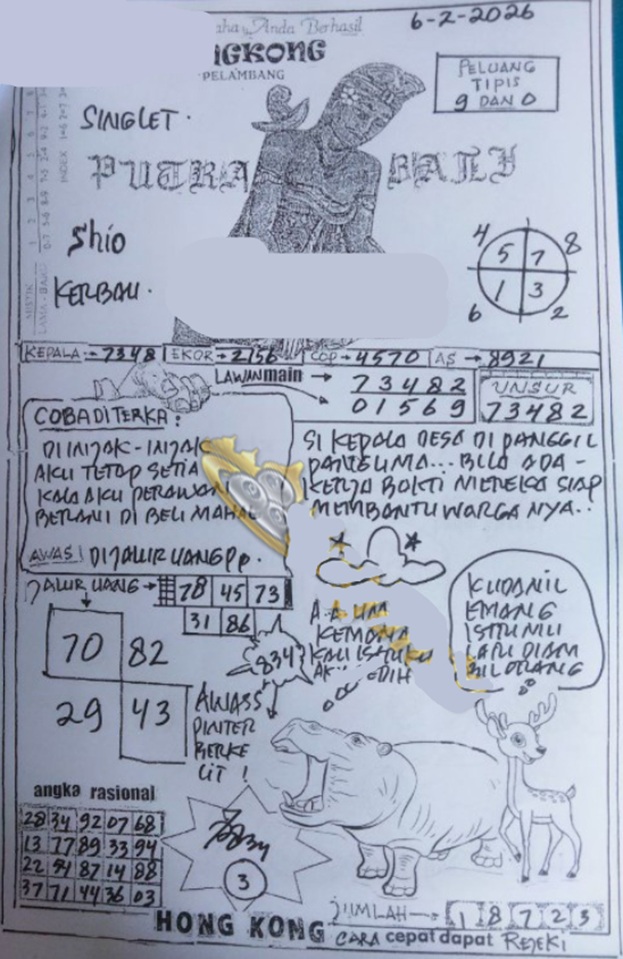 Anda Berhasil
6-2-2026
GKONG
PELAMBANG
PELUANG
TIPIS
9 DAN 0
SINGLET.
PUTRA BALI
Shio
KERBAU.
INDEX
4 8
5 7
1 3
6 2
KEPALA 7348 EKOR 2156 COP 4570 AS 8921
LAWAN main
73482
01569
UNSUR
73482
COBA DITERKA:
DI INJAK-INJAK
AKU TETAP SETIA
KALA AKU PERAWAN
BERANI DI BELI MAHAL
SI KEPALA DESA DI PANGGIL
PANGLIMA... BILA ADA-
KERJA BAKTI MEREKA SIAP
MEMBANTU WARGA NYA..
AWAS! DIJALUR UANG Pp.
JALUR UANG 78 45 73
31 86
70 82
29 43
834
AWASS
PINTER
BERKE
LIT!
KEMANA
KUDANIL
EMANG
ISTRIMU
LARI DIAM
BILORANG
angka rasional
28 34 92 07 68
13 77 89 33 94
22 54 87 14 88
37 71 44 36 03
3
JUMLAH 1 8 7 2 3
HONG KONG CARA cepat dapat REJEKI